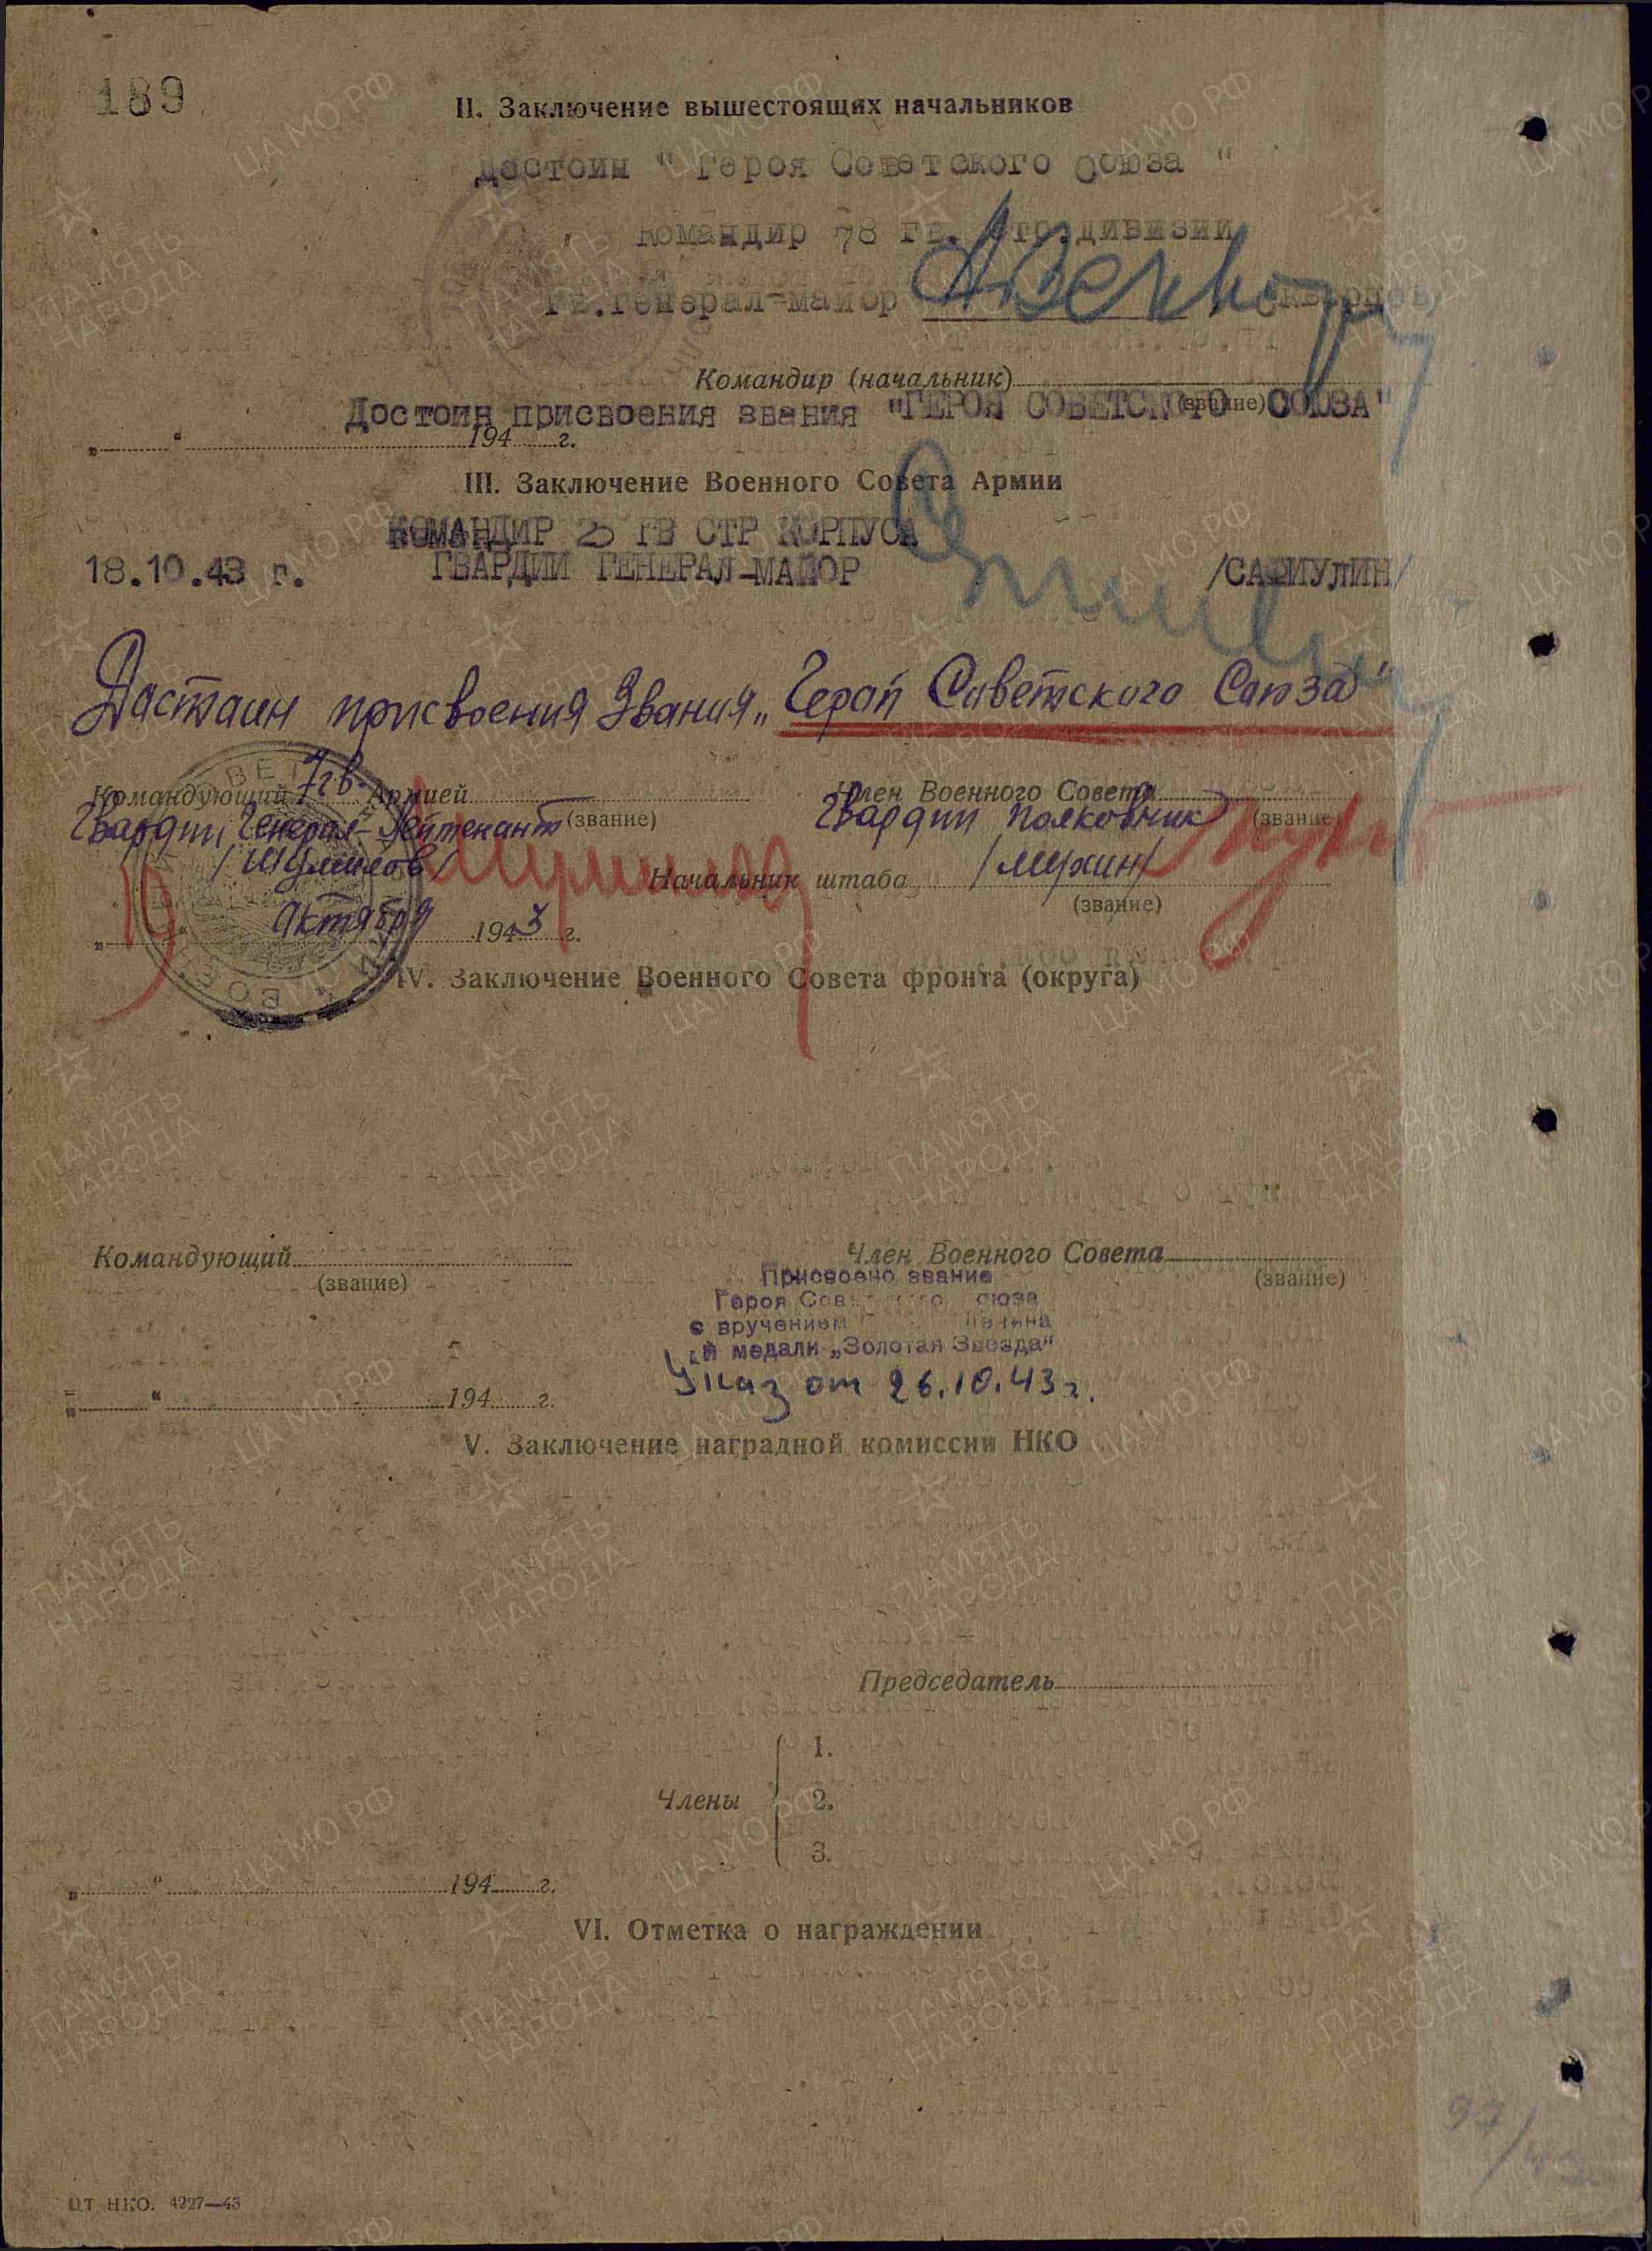 189
II. Заключение вышестоящих начальников
Достоин "Героя Советского Союза"
Командир 78 гв. стр. дивизии
Гв. генерал-майор
Командир (начальник)
(звание)
Достоин присвоения звания "ГЕРОЯ СОВЕТСКОГО СОЮЗА"
„ “ 194 г.
III. Заключение Военного Совета Армии
КОМАНДИР 25 ГВ СТР КОРПУСА
18.10.43 г. ГВАРДИИ ГЕНЕРАЛ-МАЙОР /САФИУЛИН/
Достоин присвоения Звания „Герой Советского Союза"
Командующий 7 гв. Армией Член Военного Совета
Гвардии Генерал-Лейтенант (звание) Гвардии полковник (звание)
/Шумилов/ Начальник штаба /Мухин/
(звание)
„ “ октября 1943 г.
IV. Заключение Военного Совета фронта (округа)
Командующий Член Военного Совета
(звание) (звание)
Присвоено звание
Героя Советского Союза
с вручением Ленина
и медали „Золотая Звезда"
Указ от 26.10.43 г.
„ “ 194 г.
V. Заключение наградной комиссии НКО
Председатель
1.
Члены 2.
3.
„ “ 194 г.
VI. Отметка о награждении
ЦТ НКО. 4227—43
ЦА МО РФ
ПАМЯТЬ НАРОДА